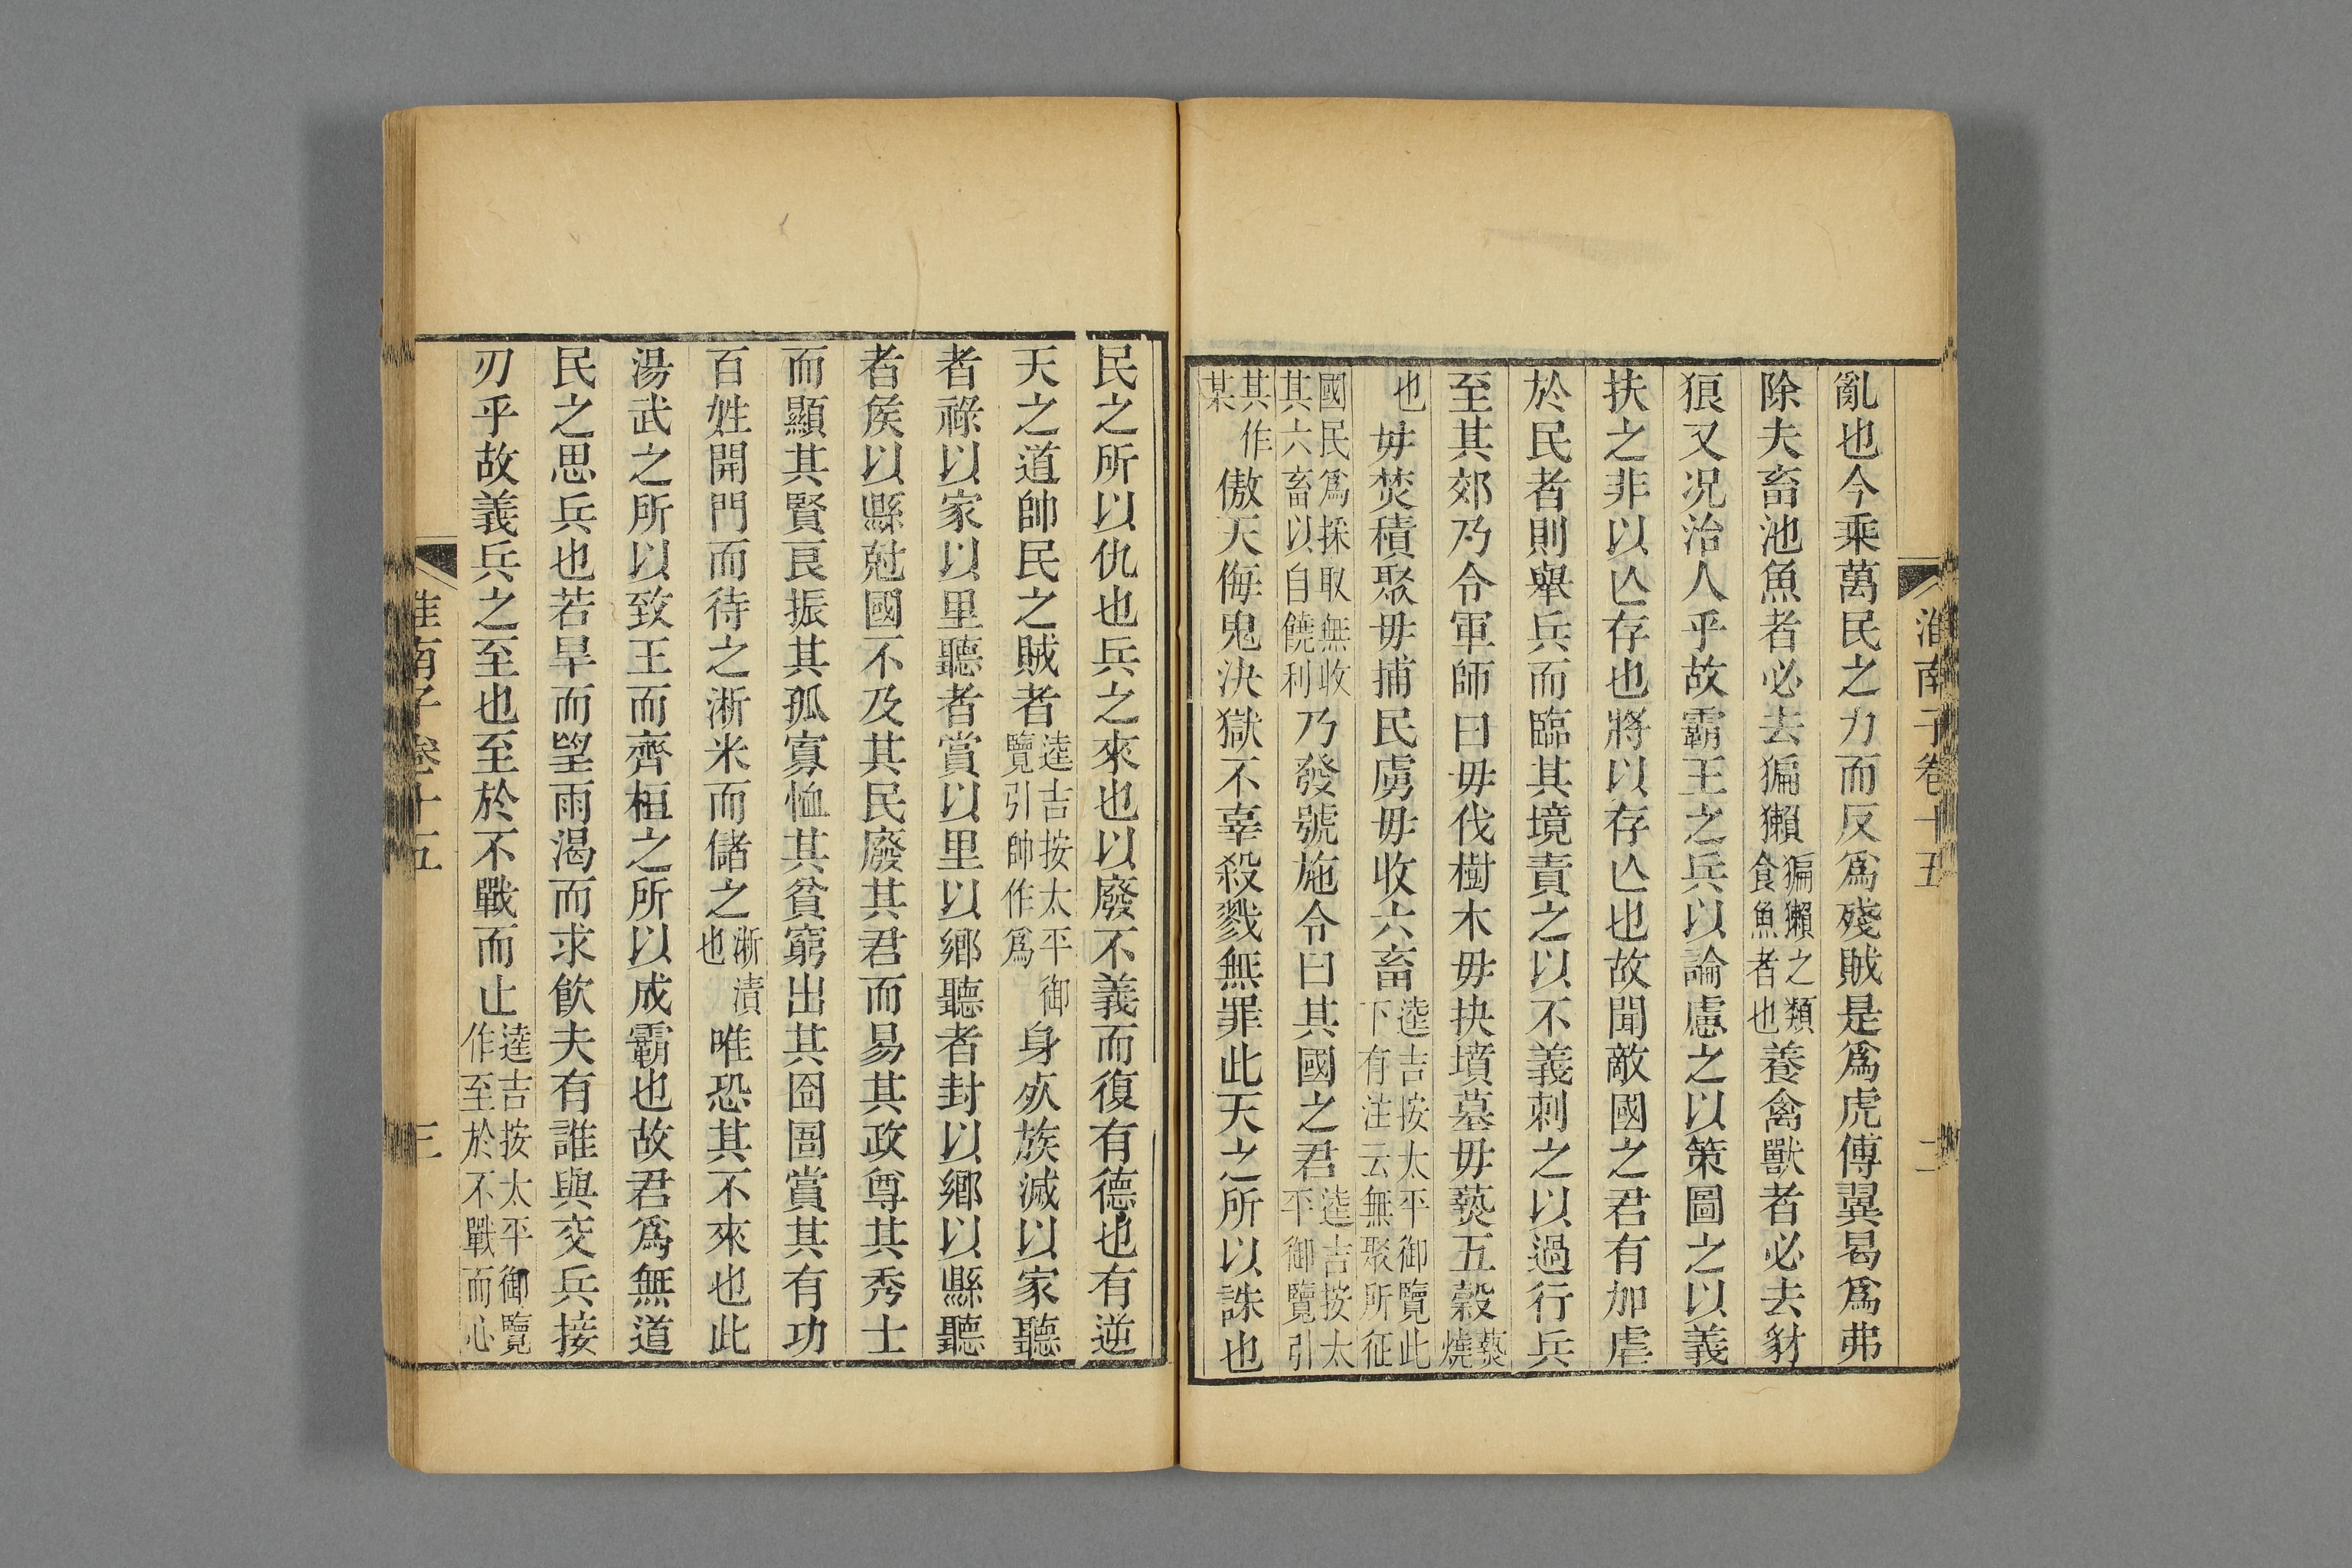 淮南子卷十五 二
亂也今乘萬民之力而反爲殘賊是爲虎傅翼曷爲弗
除夫畜池魚者必去猵獺猵獺之類食魚者也養禽獸者必去豺
狼又況治人乎故霸王之兵以論慮之以策圖之以義
扶之非以亾存也將以存亾也故聞敵國之君有加虐
於民者則舉兵而臨其境責之以不義刺之以過行兵
至其郊乃令軍師曰毋伐樹木毋抉墳墓毋爇五穀爇燒
也毋焚積聚毋捕民虜毋收六畜逵吉按太平御覽此下有注云無聚所征
國民爲採取無收其六畜以自饒利乃發號施令曰其國之君逵吉按太平御覽引
其作某傲天侮鬼決獄不辜殺戮無罪此天之所以誅也
民之所以仇也兵之來也以廢不義而復有德也有逆
天之道帥民之賊者逵吉按太平御覽引帥作爲身死族滅以家聽
者祿以家以里聽者賞以里以鄉聽者封以鄉以縣聽
者矦以縣尅國不及其民廢其君而易其政尊其秀士
而顯其賢良振其孤寡恤其貧窮出其囹圄賞其有功
百姓開門而待之淅米而儲之淅漬也唯恐其不來也此
湯武之所以致王而齊桓之所以成霸也故君爲無道
民之思兵也若旱而望雨渴而求飲夫有誰與交兵接
刃乎故義兵之至也至於不戰而止逵吉按太平御覽作至於不戰而心
淮南子卷十五 三